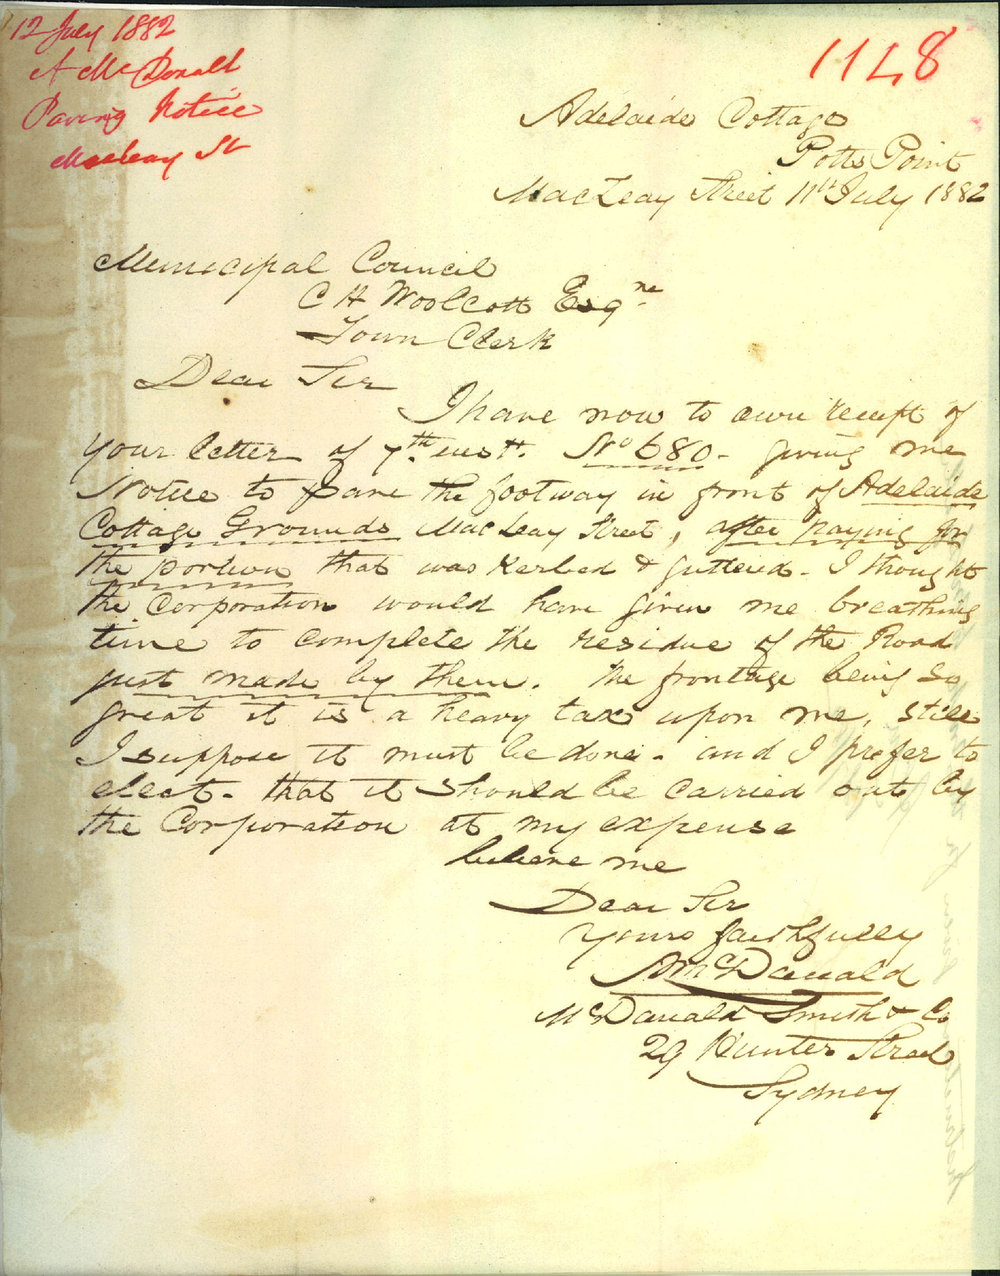 12 July 1882
A McDonald
Paving Notice
Macleay St
1148
Adelaide Cottage
Potts Point
MacLeay Street 11th July 1882
Municipal Council
C H Woolcott Esqre
Town Clerk
Dear Sir
I have now to own receipt of
your letter of 7th inst. No 680 - giving me
Notice to pave the footway in front of Adelaide
Cottage Grounds MacLeay Street, after paying for
the portion that was kerbed & guttered - I thought
the Corporation would have given me breathing
time to complete the residue of the Road
just made by them. The frontage being so
great it is a heavy tax upon me, still
I suppose it must be done - and I prefer to
elect - that it should be carried out by
the Corporation at my expense
believe me
Dear Sir
Yours faithfully
A McDonald
McDonald Smith & Co
29 Hunter Street
Sydney